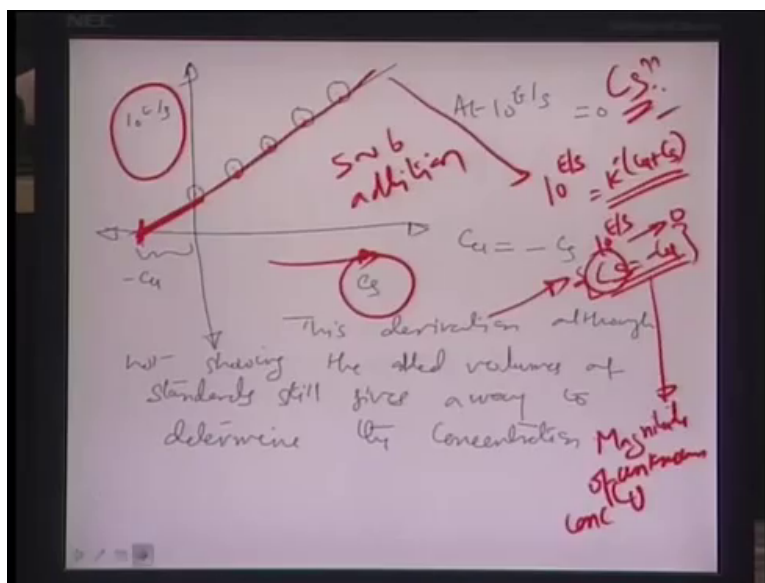 NEC
10^E/s
At 10^E/s = 0
Cs''
5~6
addition
10^E/s = K'(Cu+Cs)
Cu = - Cs
10^E/s → 0
Cs = -Cu
-Cu
Cs
This derivation although
not showing the added volumes of
standards still gives a way to
determine the Concentration
Magnitude
of unknown
conc
Cu